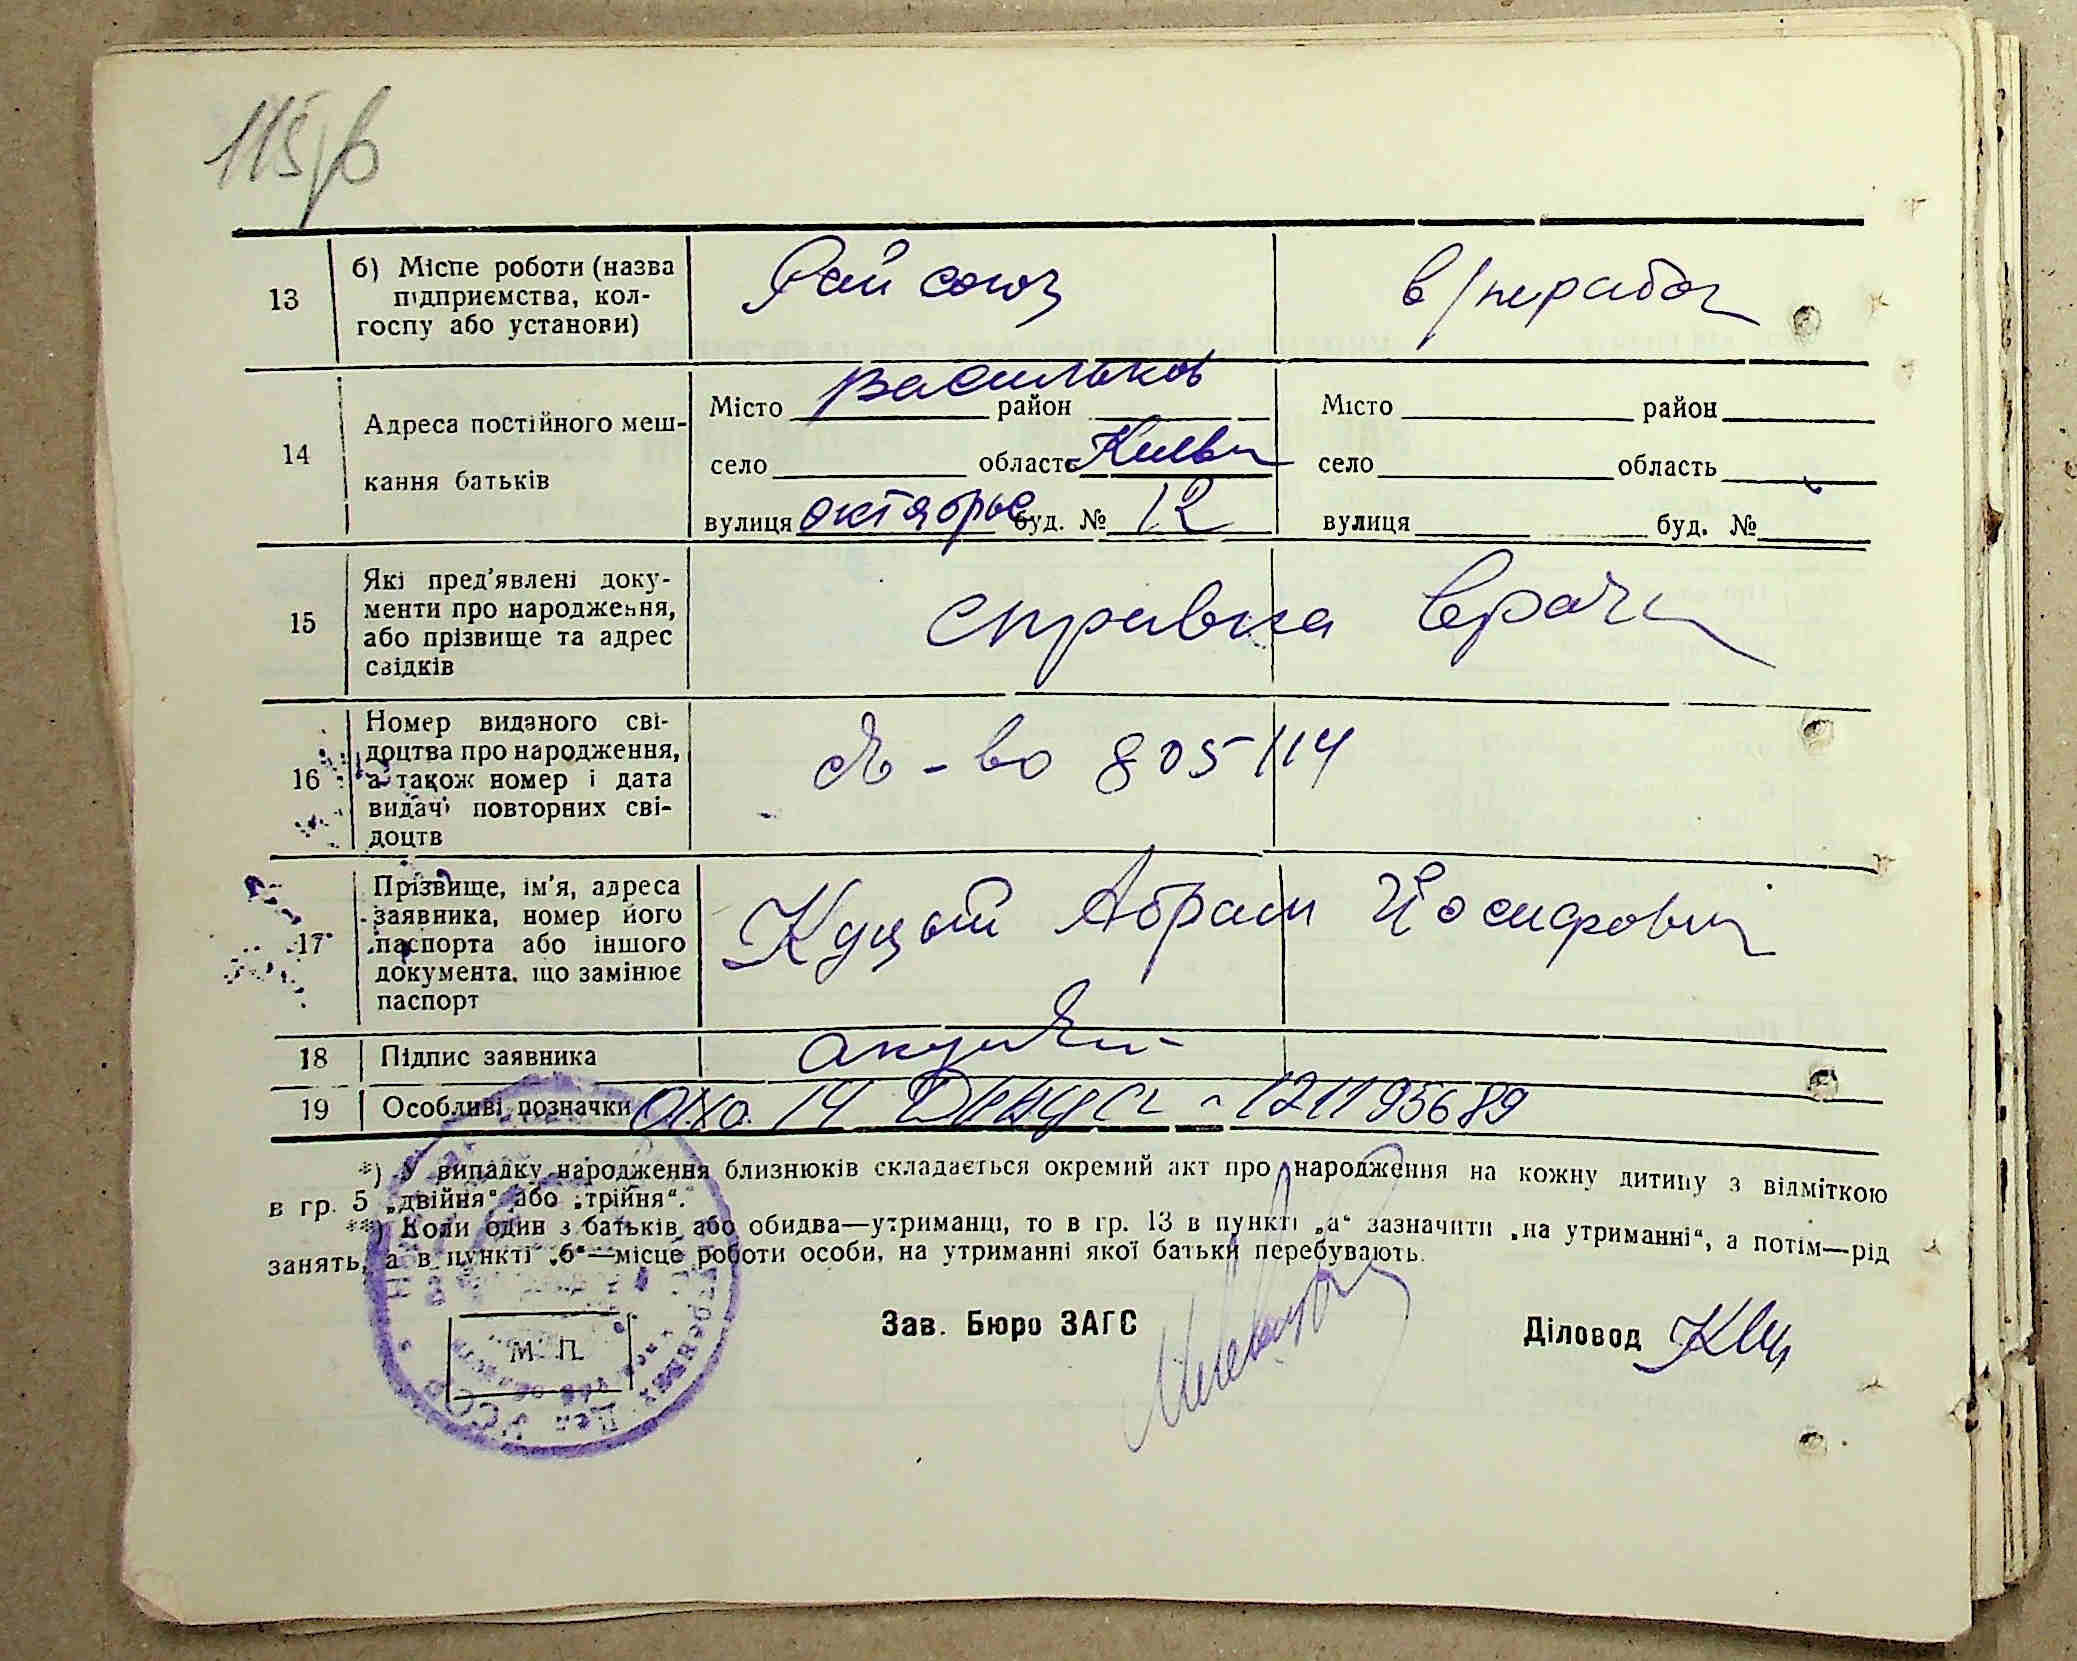 13
б) Місце роботи (назва
підприємства, кол-
госпу або установи)
Рай союз
14
Адреса постійного меш-
кання батьків
Місто Васильков район
село область Киевск
вулиця Октябрьс буд. № 12
Місто район
село область
вулиця буд. №
15
Які пред'явлені доку-
менти про народження,
або прізвище та адрес
свідків
справка врача
16
Номер виданого сві-
доцтва про народження,
а також номер і дата
видачі повторних сві-
доцтв
-во 805114
17
Прізвище, ім'я, адреса
заявника, номер його
паспорта або іншого
документа, що замінює
паспорт
Куцый Абрам Йосифович
18
Підпис заявника
19
Особливі позначки
*) У випадку народження близнюків складається окремий акт про народження на кожну дитину з відміткою
в гр. 5 „двійня“ або „трійня“.
**) Коли один з батьків або обидва—утриманці, то в гр. 13 в пункті „а“ зазначити „на утриманні“, а потім—рід
занять, а в пункті „б“—місце роботи особи, на утриманні якої батьки перебувають.
Зав. Бюро ЗАГС
Діловод
М. П.